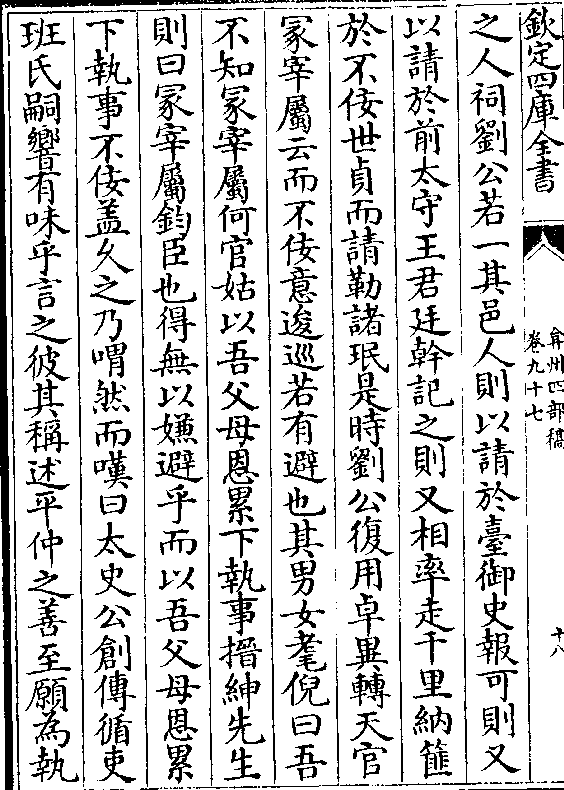 欽定四庫全書
弇州四部稿
卷九十七
十八
之人祠劉公若一其邑人則以請於臺御史報可則又
以請於前太守王君廷幹記之則又相率走千里納篚
於不佞世貞而請勒諸珉是時劉公復用卓異轉天官
冡宰屬云而不佞意逡巡若有避也其男女耄倪曰吾
不知冡宰屬何官姑以吾父母恩累下執事搢紳先生
則曰冡宰屬鈞臣也得無以嫌避乎而以吾父母恩累
下執事不佞盖久之乃喟然而嘆曰太史公創傳循吏
班氏嗣響有味乎言之彼其稱述平仲之善至願為執